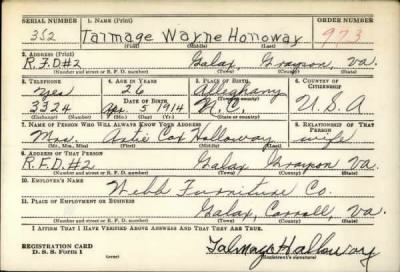 SERIAL NUMBER 1. NAME (Print) ORDER NUMBER
352 Talmage Wayne Holloway 973
(First) (Middle) (Last)
2. ADDRESS (Print)
R.F.D#2 Galax, Grayson, Va.
(Number and street or R. F. D. number) (Town) (County) (State)
3. TELEPHONE 4. AGE IN YEARS 5. PLACE OF BIRTH 6. COUNTRY OF CITIZENSHIP
Yes 26 Alleghany
DATE OF BIRTH (Town or county)
3324 Apr. 5 1914 N.C. U.S.A
(Exchange) (Number) (Mo.) (Day) (Yr.) (State or country)
7. NAME OF PERSON WHO WILL ALWAYS KNOW YOUR ADDRESS 8. RELATIONSHIP OF THAT PERSON
Mrs. Cox Holloway wife
(Mr., Mrs., Miss) (First) (Middle) (Last)
9. ADDRESS OF THAT PERSON
R.F.D.#2 Galax Grayson Va.
(Number and street or R. F. D. number) (Town) (County) (State)
10. EMPLOYER'S NAME
Webb Furniture Co.
11. PLACE OF EMPLOYMENT OR BUSINESS
Galax, Carroll, Va.
(Number and street or R. F. D. number) (Town) (County) (State)
I AFFIRM THAT I HAVE VERIFIED ABOVE ANSWERS AND THAT THEY ARE TRUE.
REGISTRATION CARD
D. S. S. Form 1 Talmage Holloway
(Registrant's signature)